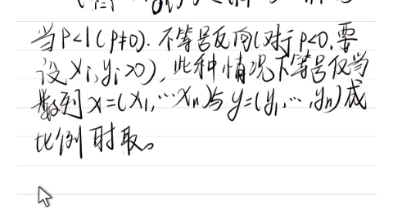 当p<1(p≠0). 不等号反向(对于p<0,要
设xᵢ,yᵢ>0), 此种情况下等号仅当
数列x=(x₁,…xₙ)与y=(y₁,…,yₙ)成
比例时取。